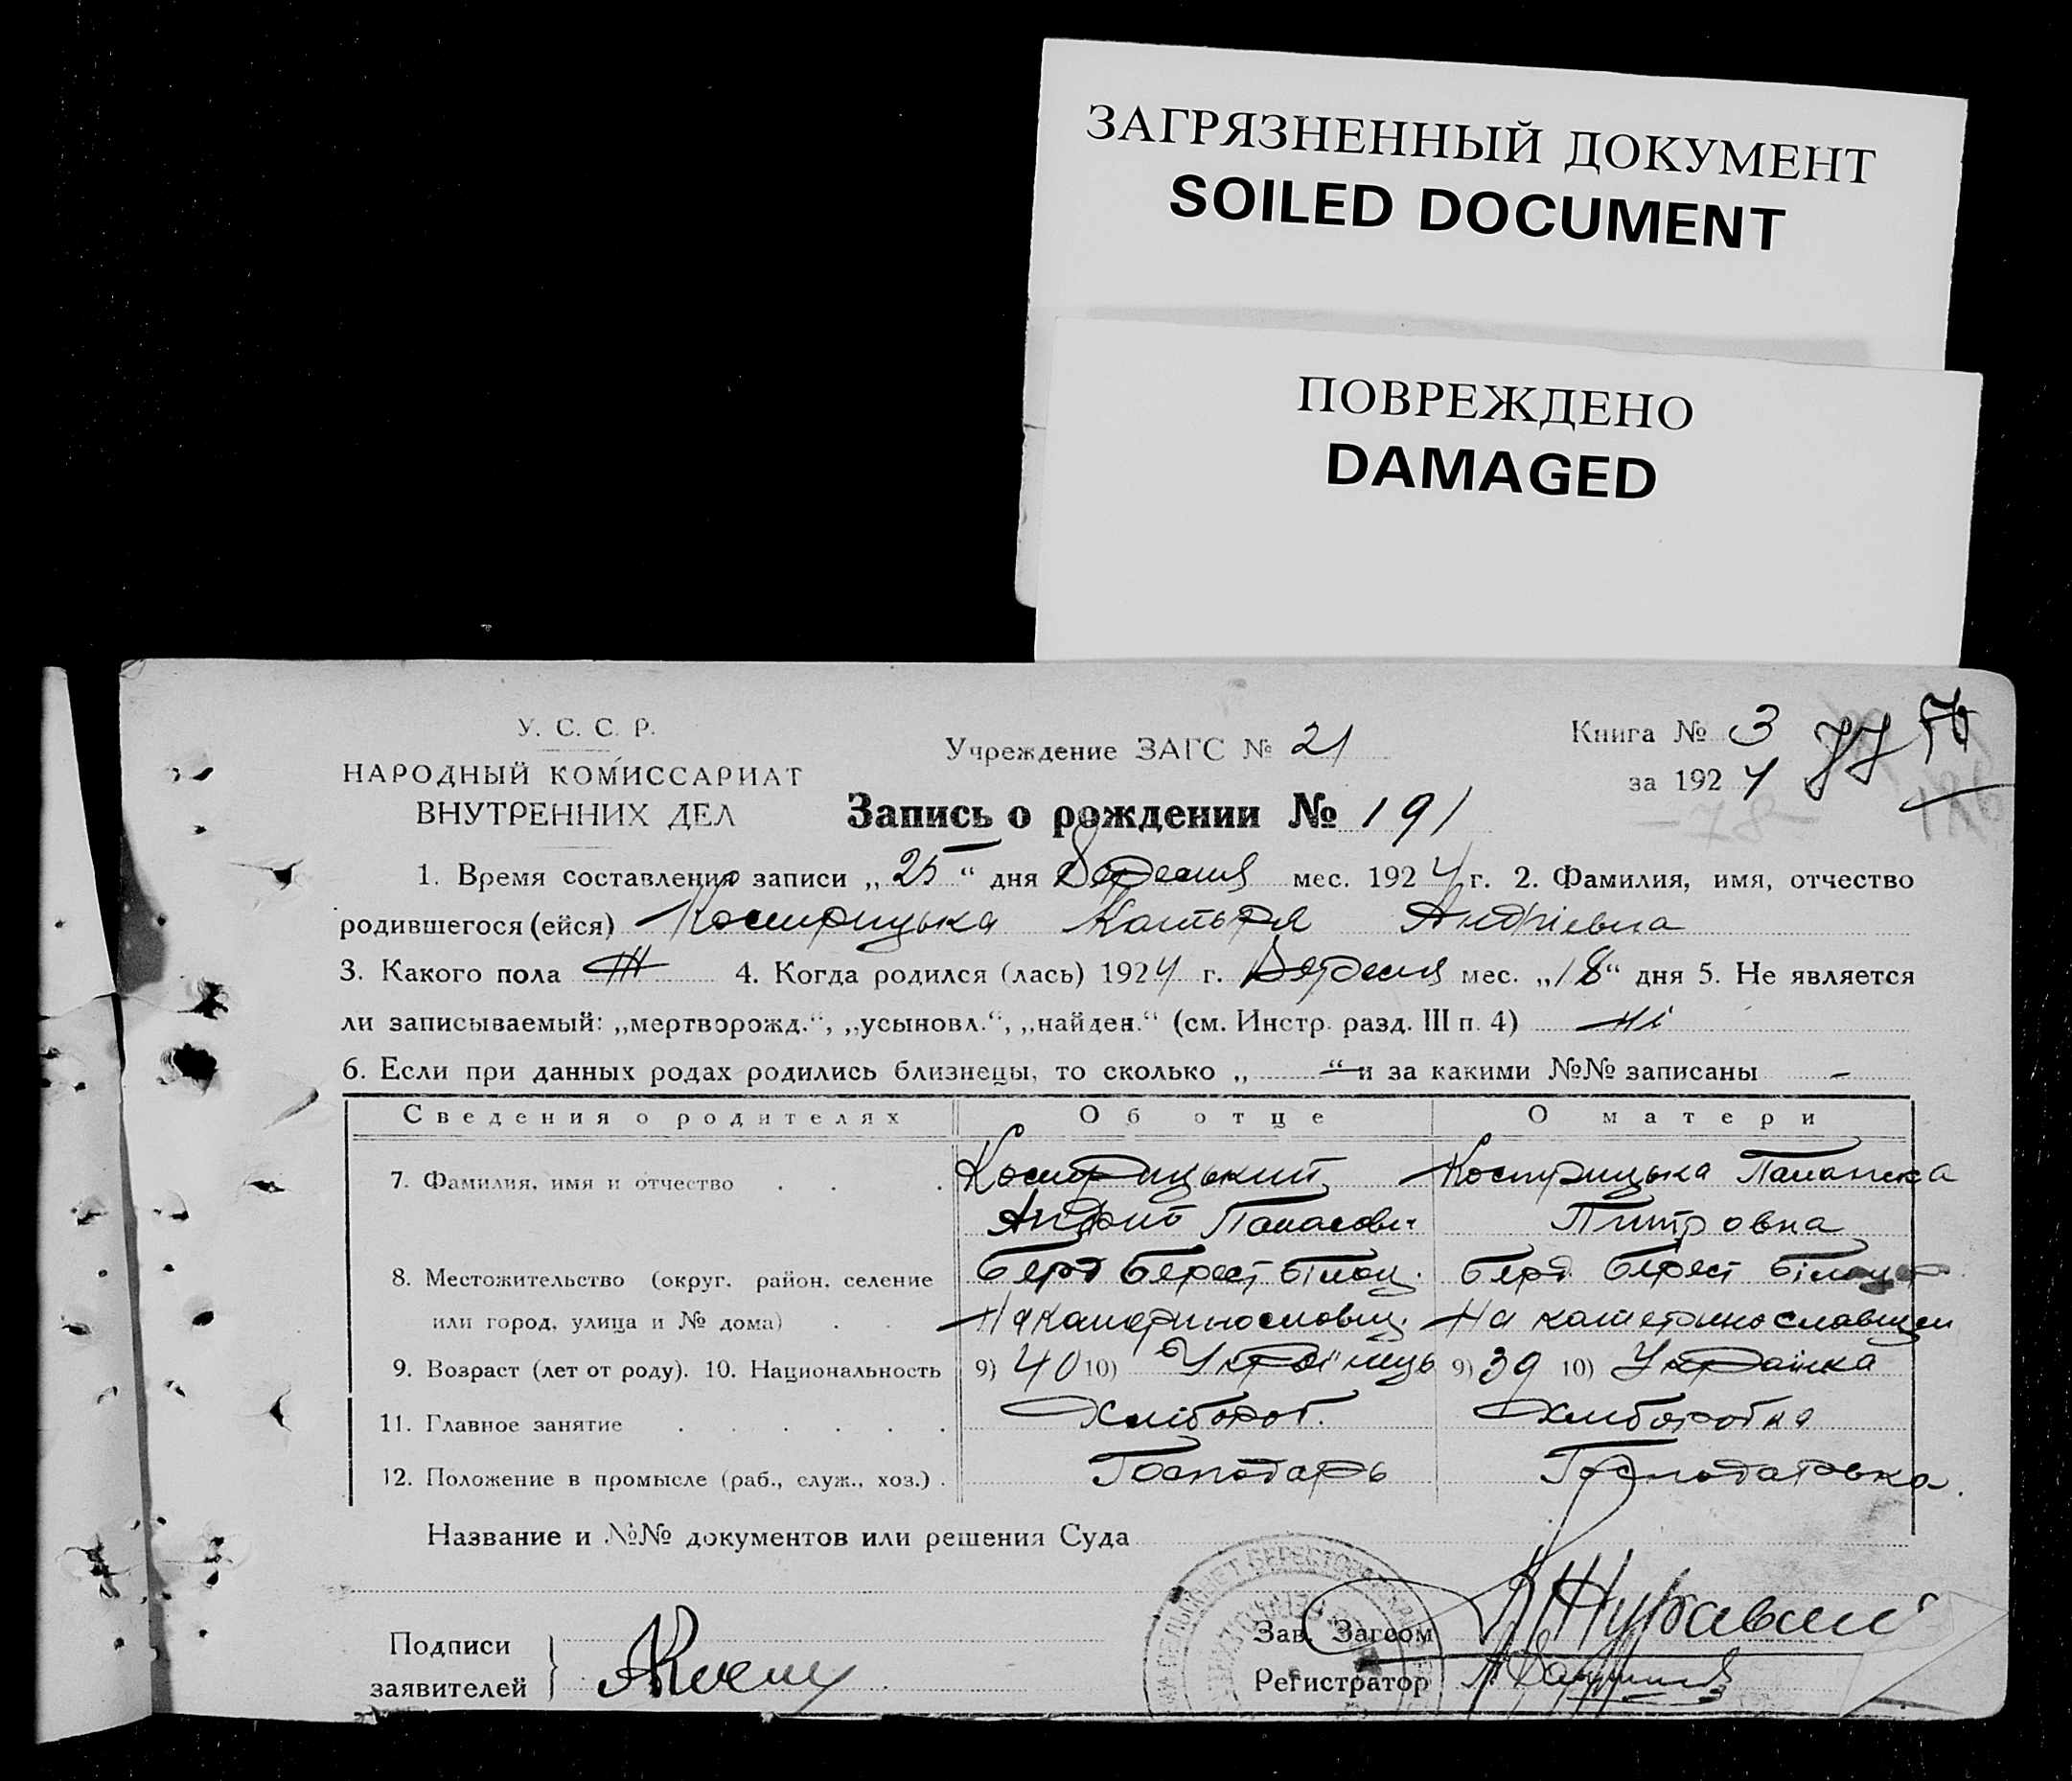 ЗАГРЯЗНЕННЫЙ ДОКУМЕНТ
SOILED DOCUMENT
ПОВРЕЖДЕНО
DAMAGED
У. С. С. Р.
НАРОДНЫЙ КОМИССАРИАТ
ВНУТРЕННИХ ДЕЛ
Учреждение ЗАГС № 21
Книга № 3
за 1924
77
Запись о рождении № 191
1. Время составления записи „25“ дня Вересня мес. 1924 г. 2. Фамилия, имя, отчество
родившегося (ейся) Кострицька Катеря Андріевна
3. Какого пола Ж 4. Когда родился (лась) 1924 г. Вересня мес. „18“ дня 5. Не является
ли записываемый: „мертворожд.“, „усыновл.“, „найден.“ (см. Инстр. разд. III п. 4) Ні
6. Если при данных родах родились близнецы, то сколько „ — “ и за какими №№ записаны –
Сведения о родителях Об отце О матери
7. Фамилия, имя и отчество . . . Кострицький Кострицька Палажка
Андрий Панасович Питровна
8. Местожительство (округ. район. селение Берд Берест Білоц. Берд. Берест Білоц
или город, улица и № дома) . . На катеринославщ. На катеринославщен
9. Возраст (лет от роду). 10. Национальность 9) 40 10) Украінець 9) 39 10) Украінка
11. Главное занятие . . . . . . Хлібороб. Хлиборобка
12. Положение в промысле (раб., служ., хоз.) . Господарь Господарька.
Название и №№ документов или решения Суда
Подписи
заявителей
Зав. Загсом
Регистратор